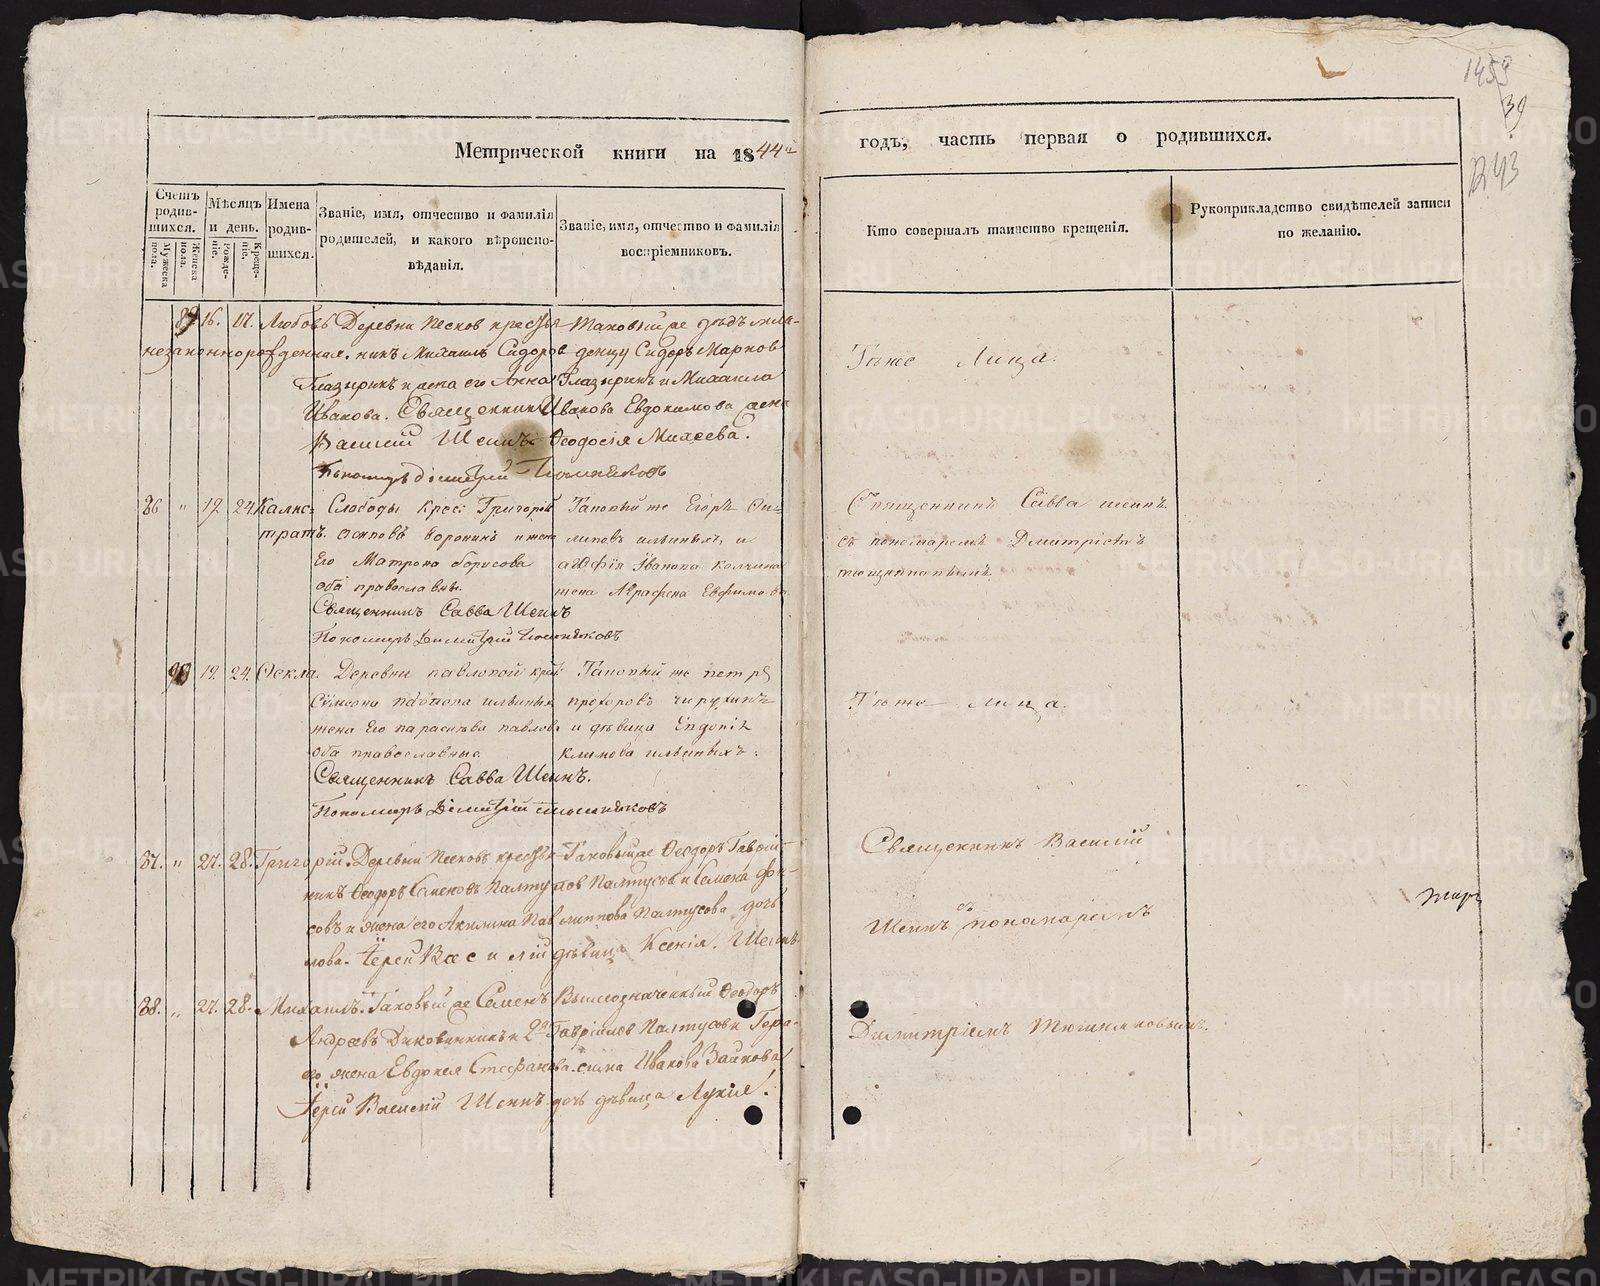 1459
39
1243
Метрической книги на 1844й годъ, часть первая о родившихся.
Счетъ родившихся.
Мужеска пола.
Женска пола.
Мѣсяцъ и день.
Рожденіе.
Крещеніе.
Имена родившихся.
Званіе, имя, отчество и фамилія родителей, и какого вѣроисповѣданія.
Званіе, имя, отчество и фамилія воспріемниковъ.
Кто совершалъ таинство крещенія.
Рукоприкладство свидѣтелей записи по желанію.
89 16. 17. Любовь
незаконнорожденная.
Деревни Песков крестья-
никъ Михаилъ Сидоров
Глазыринъ и жена его Анна
Ивакова. Священникъ
Василий Шеинъ
Пономарь Димитрий
Таковый же дѣдъ мла-
денцу Сидоръ Марков
Глазыринъ и Михаила
Ивакова Евдокимова жена
Феодосія Михеева.
Тѣже Лица.
36 " 19. 24. Калис-
тратъ.
Слободы крес: Григорій
осиповъ воронинъ и жена
Его Матрона борисова
оба православны.
Священникъ Савва Шеинъ
Пономарь Димитрій
Таковый же Егоръ Фи-
липовъ ильиныхъ, и
Иванова
жена Аграфена Евфимова
Священникъ Савва шеинъ
съ пономаремъ Дмитріемъ
90 19. 24. Фекла.
Деревни павловой кре:
Симеона ильиныхъ
жена Его параскева павлова
оба православные
Священникъ Савва Шеинъ.
Пономарь Димитрій
Таковый же петръ
прохоровъ
и дѣвица Евдокія
Климова ильиныхъ.
Тѣже лица.
37. " 27. 28. Григорій.
Деревни Песковъ крестья-
никъ Феодоръ Семеновъ Палту-
совъ и жена его Акилина Пав-
лова. Іерей Василій
Таковый же Феодоръ Гавріи-
лов Палтусов и Семена Фи-
липпова Палтусова дочь
дѣвица Ксенія. Шеинъ
Священникъ Василій
Шеинъ съ пономаремъ
38. " 27. 28. Михаилъ.
Таковый же Семенъ
Андреевъ и 2я
его жена Евдокея Стефанова.
Іерей Василій Шеинъ
Вышеозначенный Феодоръ
Гавріиловъ Палтусов и Гера-
сима Ивакова Зайкова
дочь дѣвица Лукия.
Димитріемъ